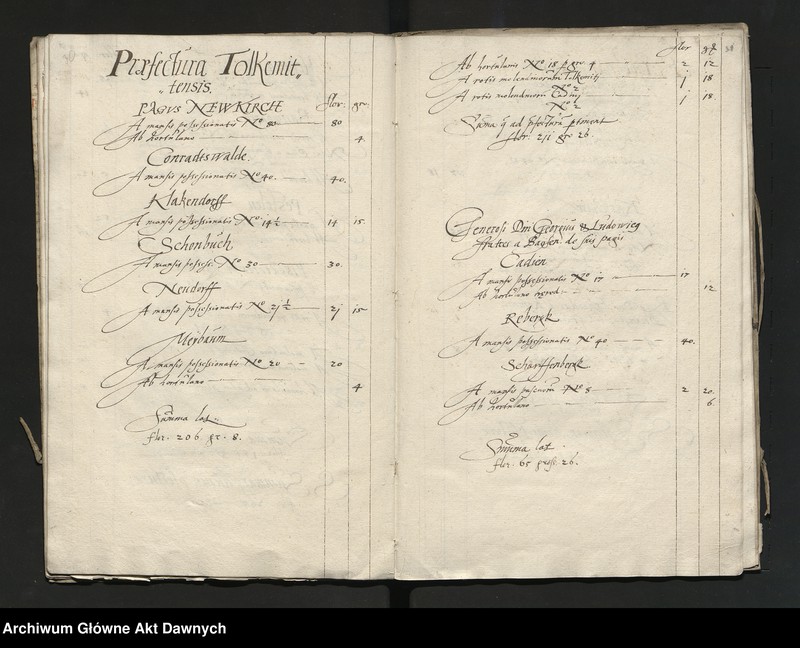 Præfectura Tolkemit„
„tensis.
PAGVS NEWKIRCH flor: gr:
A mansis possessionatis No 80 80
Ab hortulano 4
Conradeswalde.
A mansis possessionatis No 40. 40.
Klakendorff
A mansis possessionatis No: 14½ 14 15
Schonbuch
A mansis possess: No 30 30.
Neudorff
A mansis possessionatis No 21½ 21 15
Meibaum
A mansis possessionatis No 20 20
Ab hortulano 4
Summa lat.
flor. 206 gr. 8.
flor gr
Ab hortulanis No 18 p gr. 4 2 12
A rotis molendinorum Tolkemit: j 18
No 2
A rotis molendinorum Cadin j 18
No 2
Summa q ad præfecturam ptineat
flor: 211 gr 26.
Generosi Dni Georgius & Ludowicg
fratres a Baysen de suis pagis
Cadien
A mansis possessionatis No 17 17
Ab hortulano 12
Rebergk
A mansis possessionatis No 40 40.
Scharffenbergk
A mansis No 8 2 20.
Ab hortulano 6
Summa lat.
flor. 65 gross. 26.
Archiwum Główne Akt Dawnych